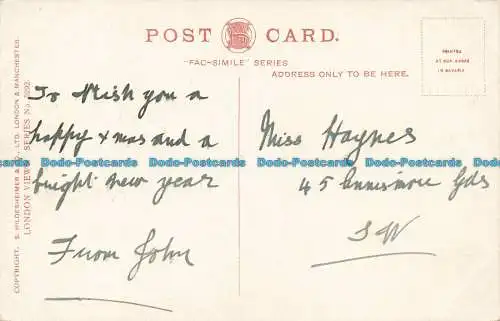 POST CARD.
"FAC-SIMILE" SERIES
ADDRESS ONLY TO BE HERE.
PRINTED
AT OUR WORKS
IN BAVARIA
To Wish you a
happy Xmas and a
bright New year
From John
Miss Haynes
45 Ennismore Gds
SW
COPYRIGHT. S. HILDESHEIMER & CO., LTD. LONDON & MANCHESTER.
LONDON VIEWS SERIES No. 5292
Dodo-Postcards Dodo-Postcards Dodo-Postcards Dodo-Postcards
Dodo-Postcards Dodo-Postcards Dodo-Postcards Dodo-Postcards